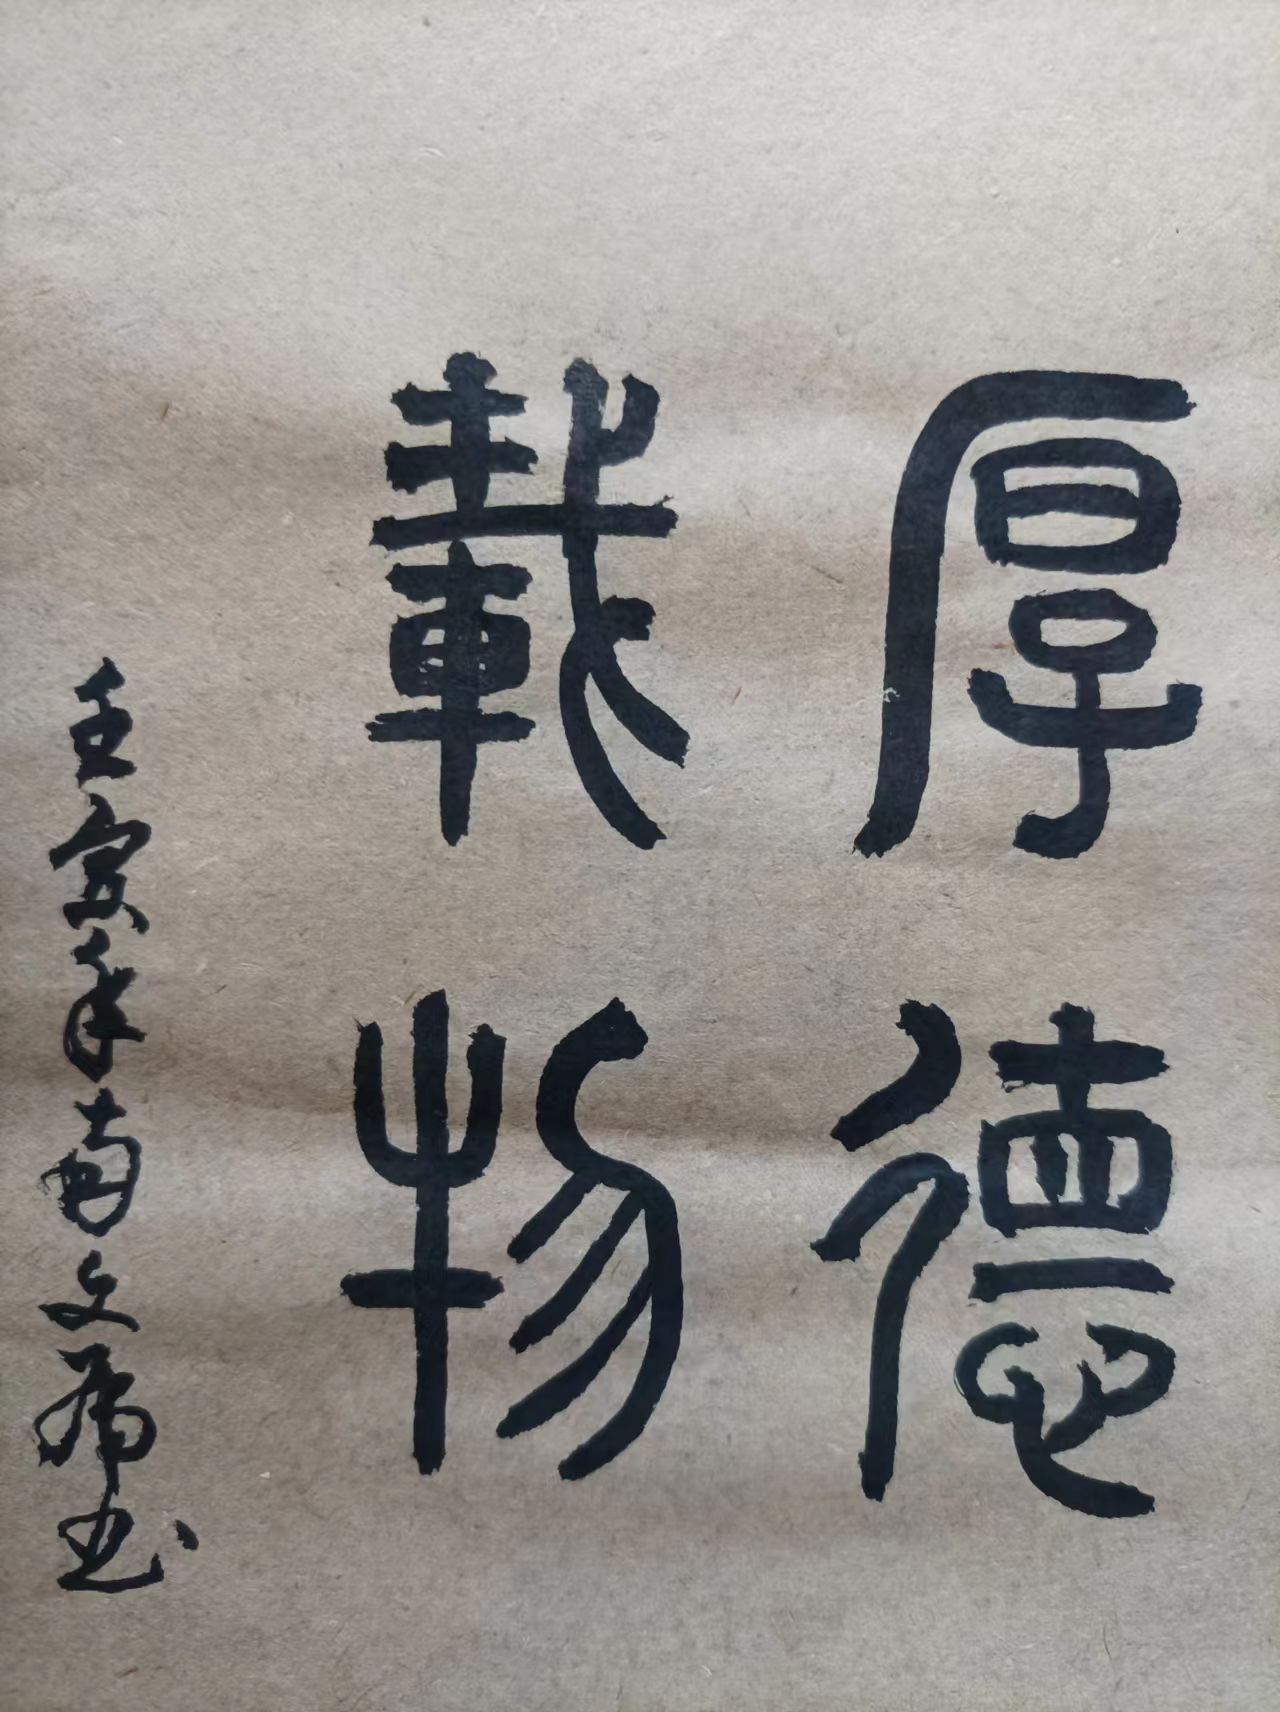 厚德
載物
壬寅年南文席书